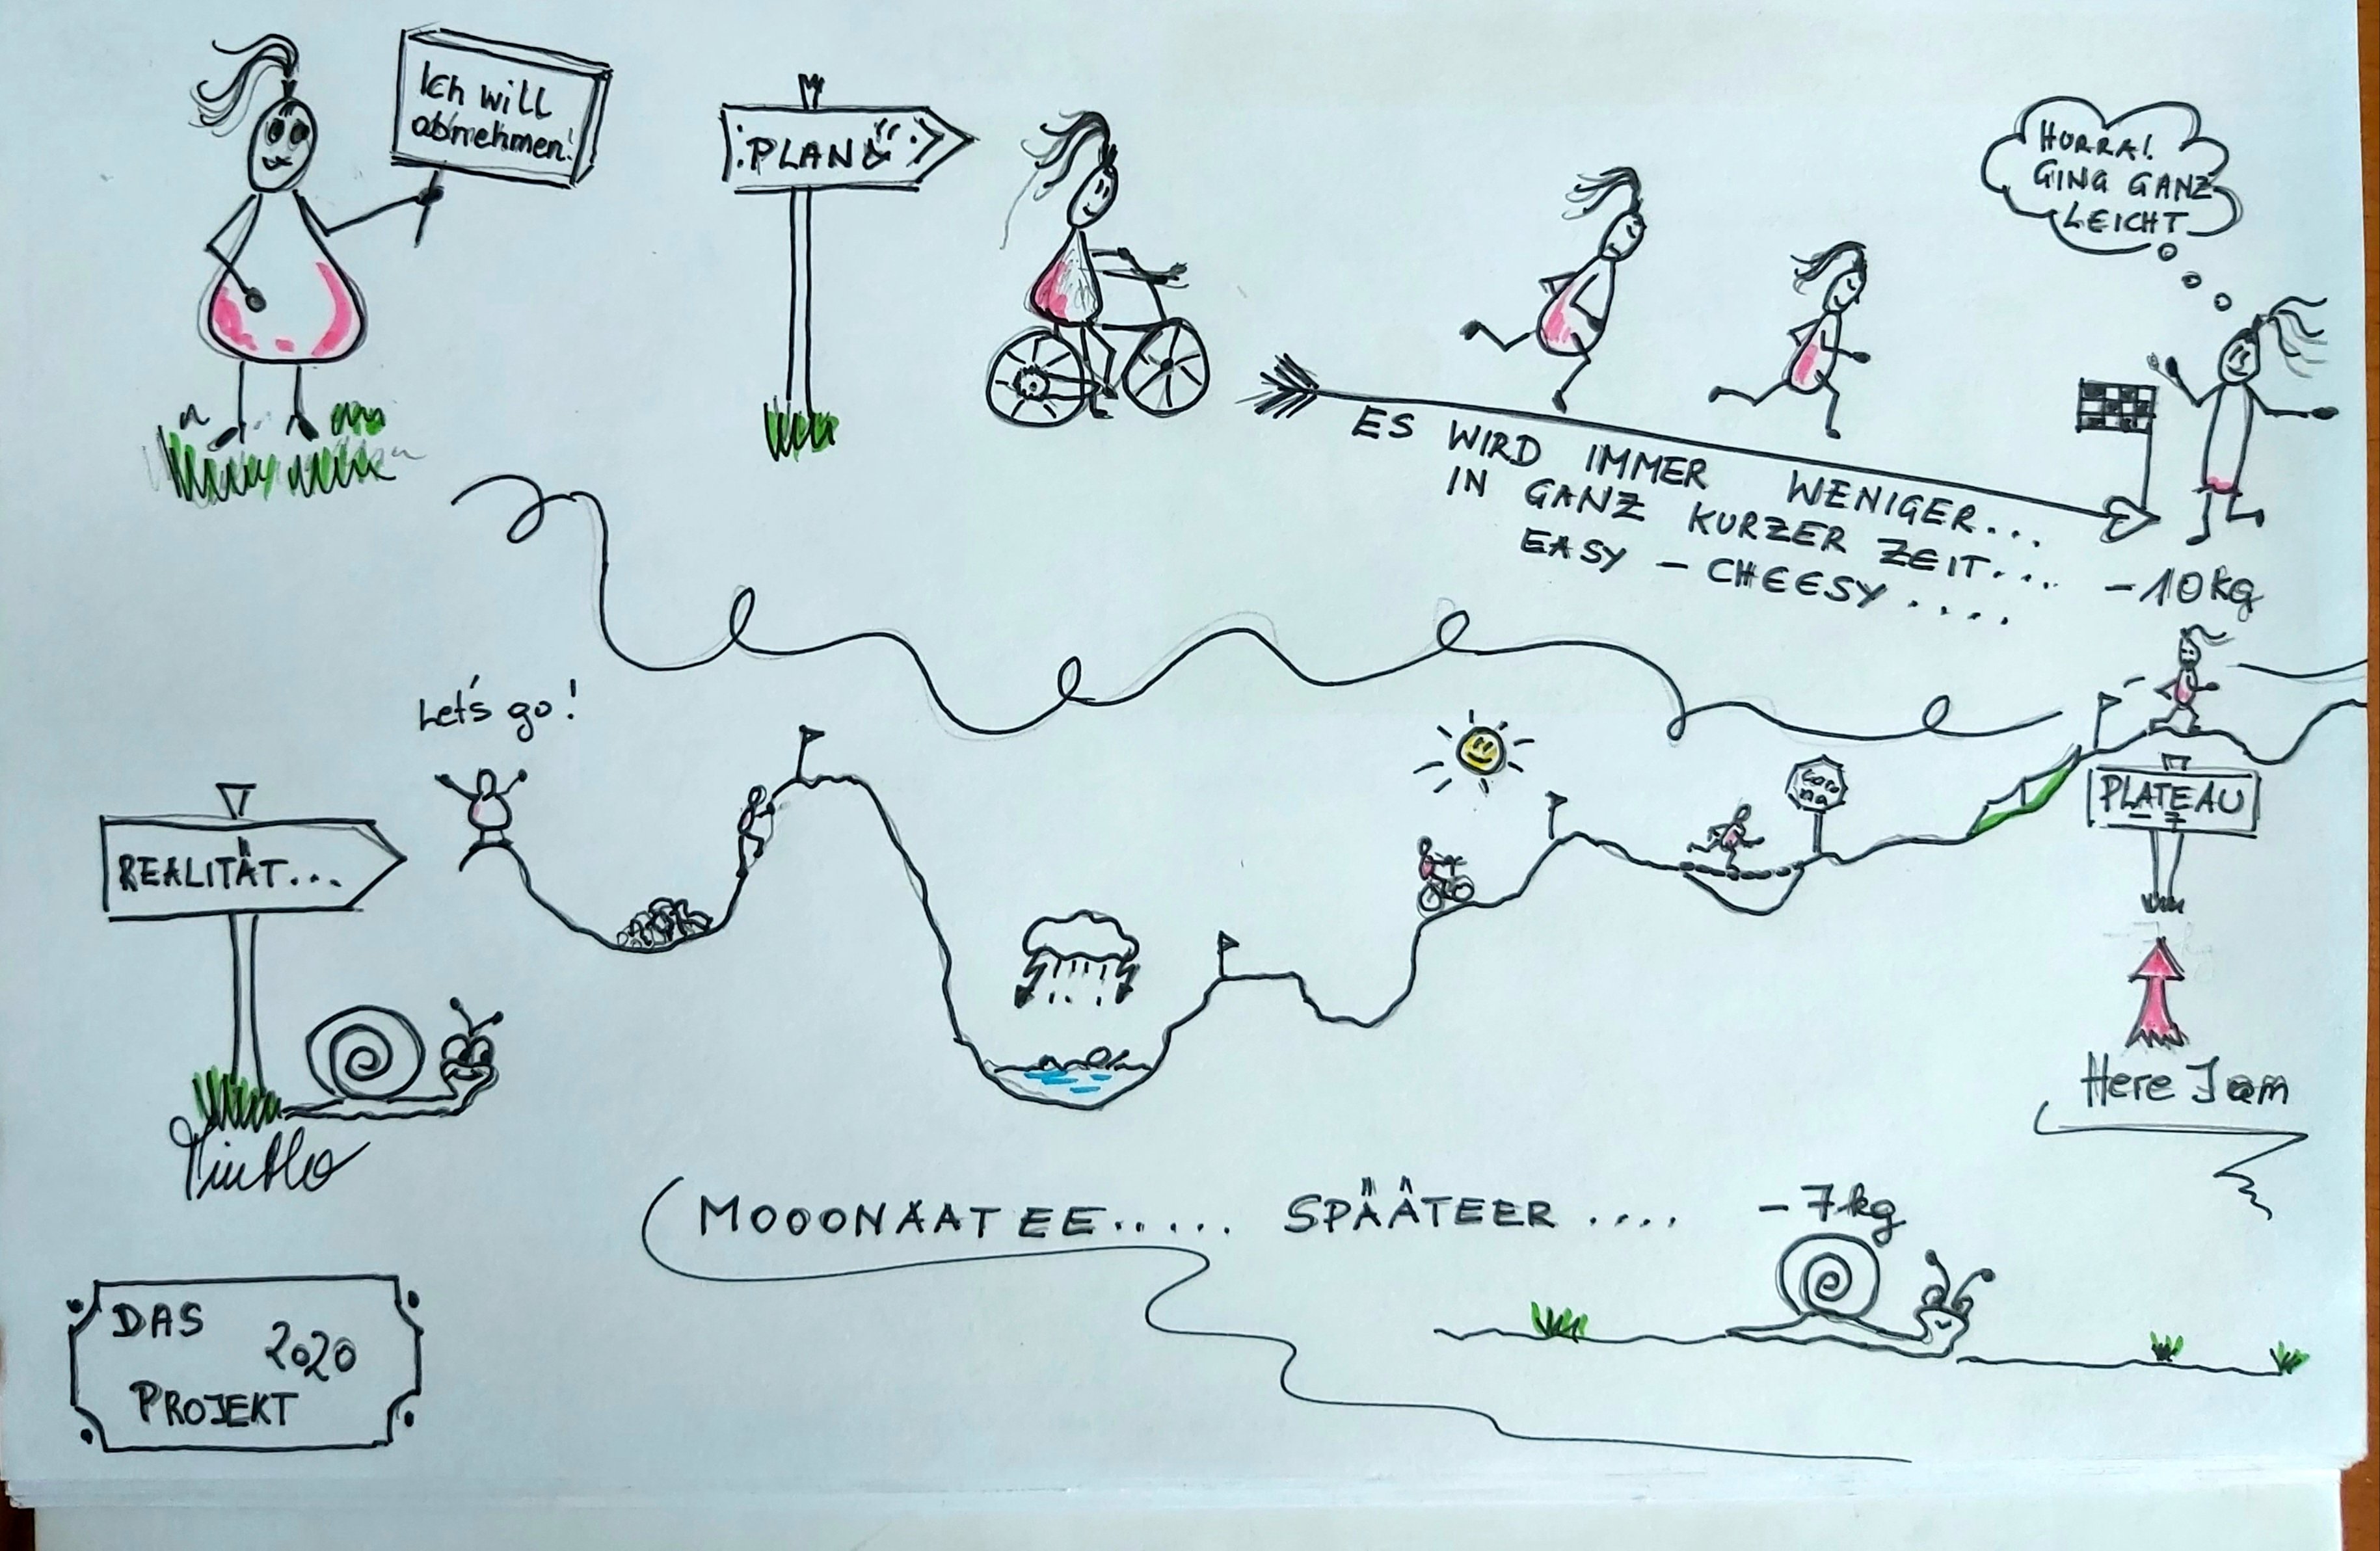 Ich will
abnehmen!
PLAN
HURRA!
GING GANZ
LEICHT
ES WIRD IMMER WENIGER...
IN GANZ KURZER ZEIT....
EASY - CHEESY.....
-10kg
Let's go!
REALITÄT...
Coro
na
PLATEAU
Here I am
MOOONAATEE..... SPÄÄTEER....
-7kg
DAS
2020
PROJEKT